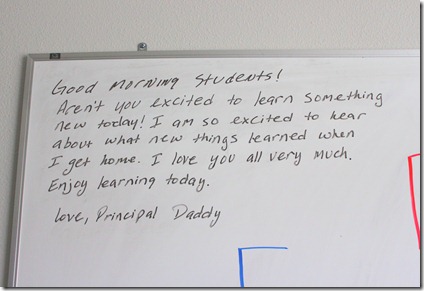 Good Morning Students!
Aren't you excited to learn something
new today! I am so excited to hear
about what new things learned when
I get home. I love you all very much.
Enjoy learning today.
Love, Principal Daddy